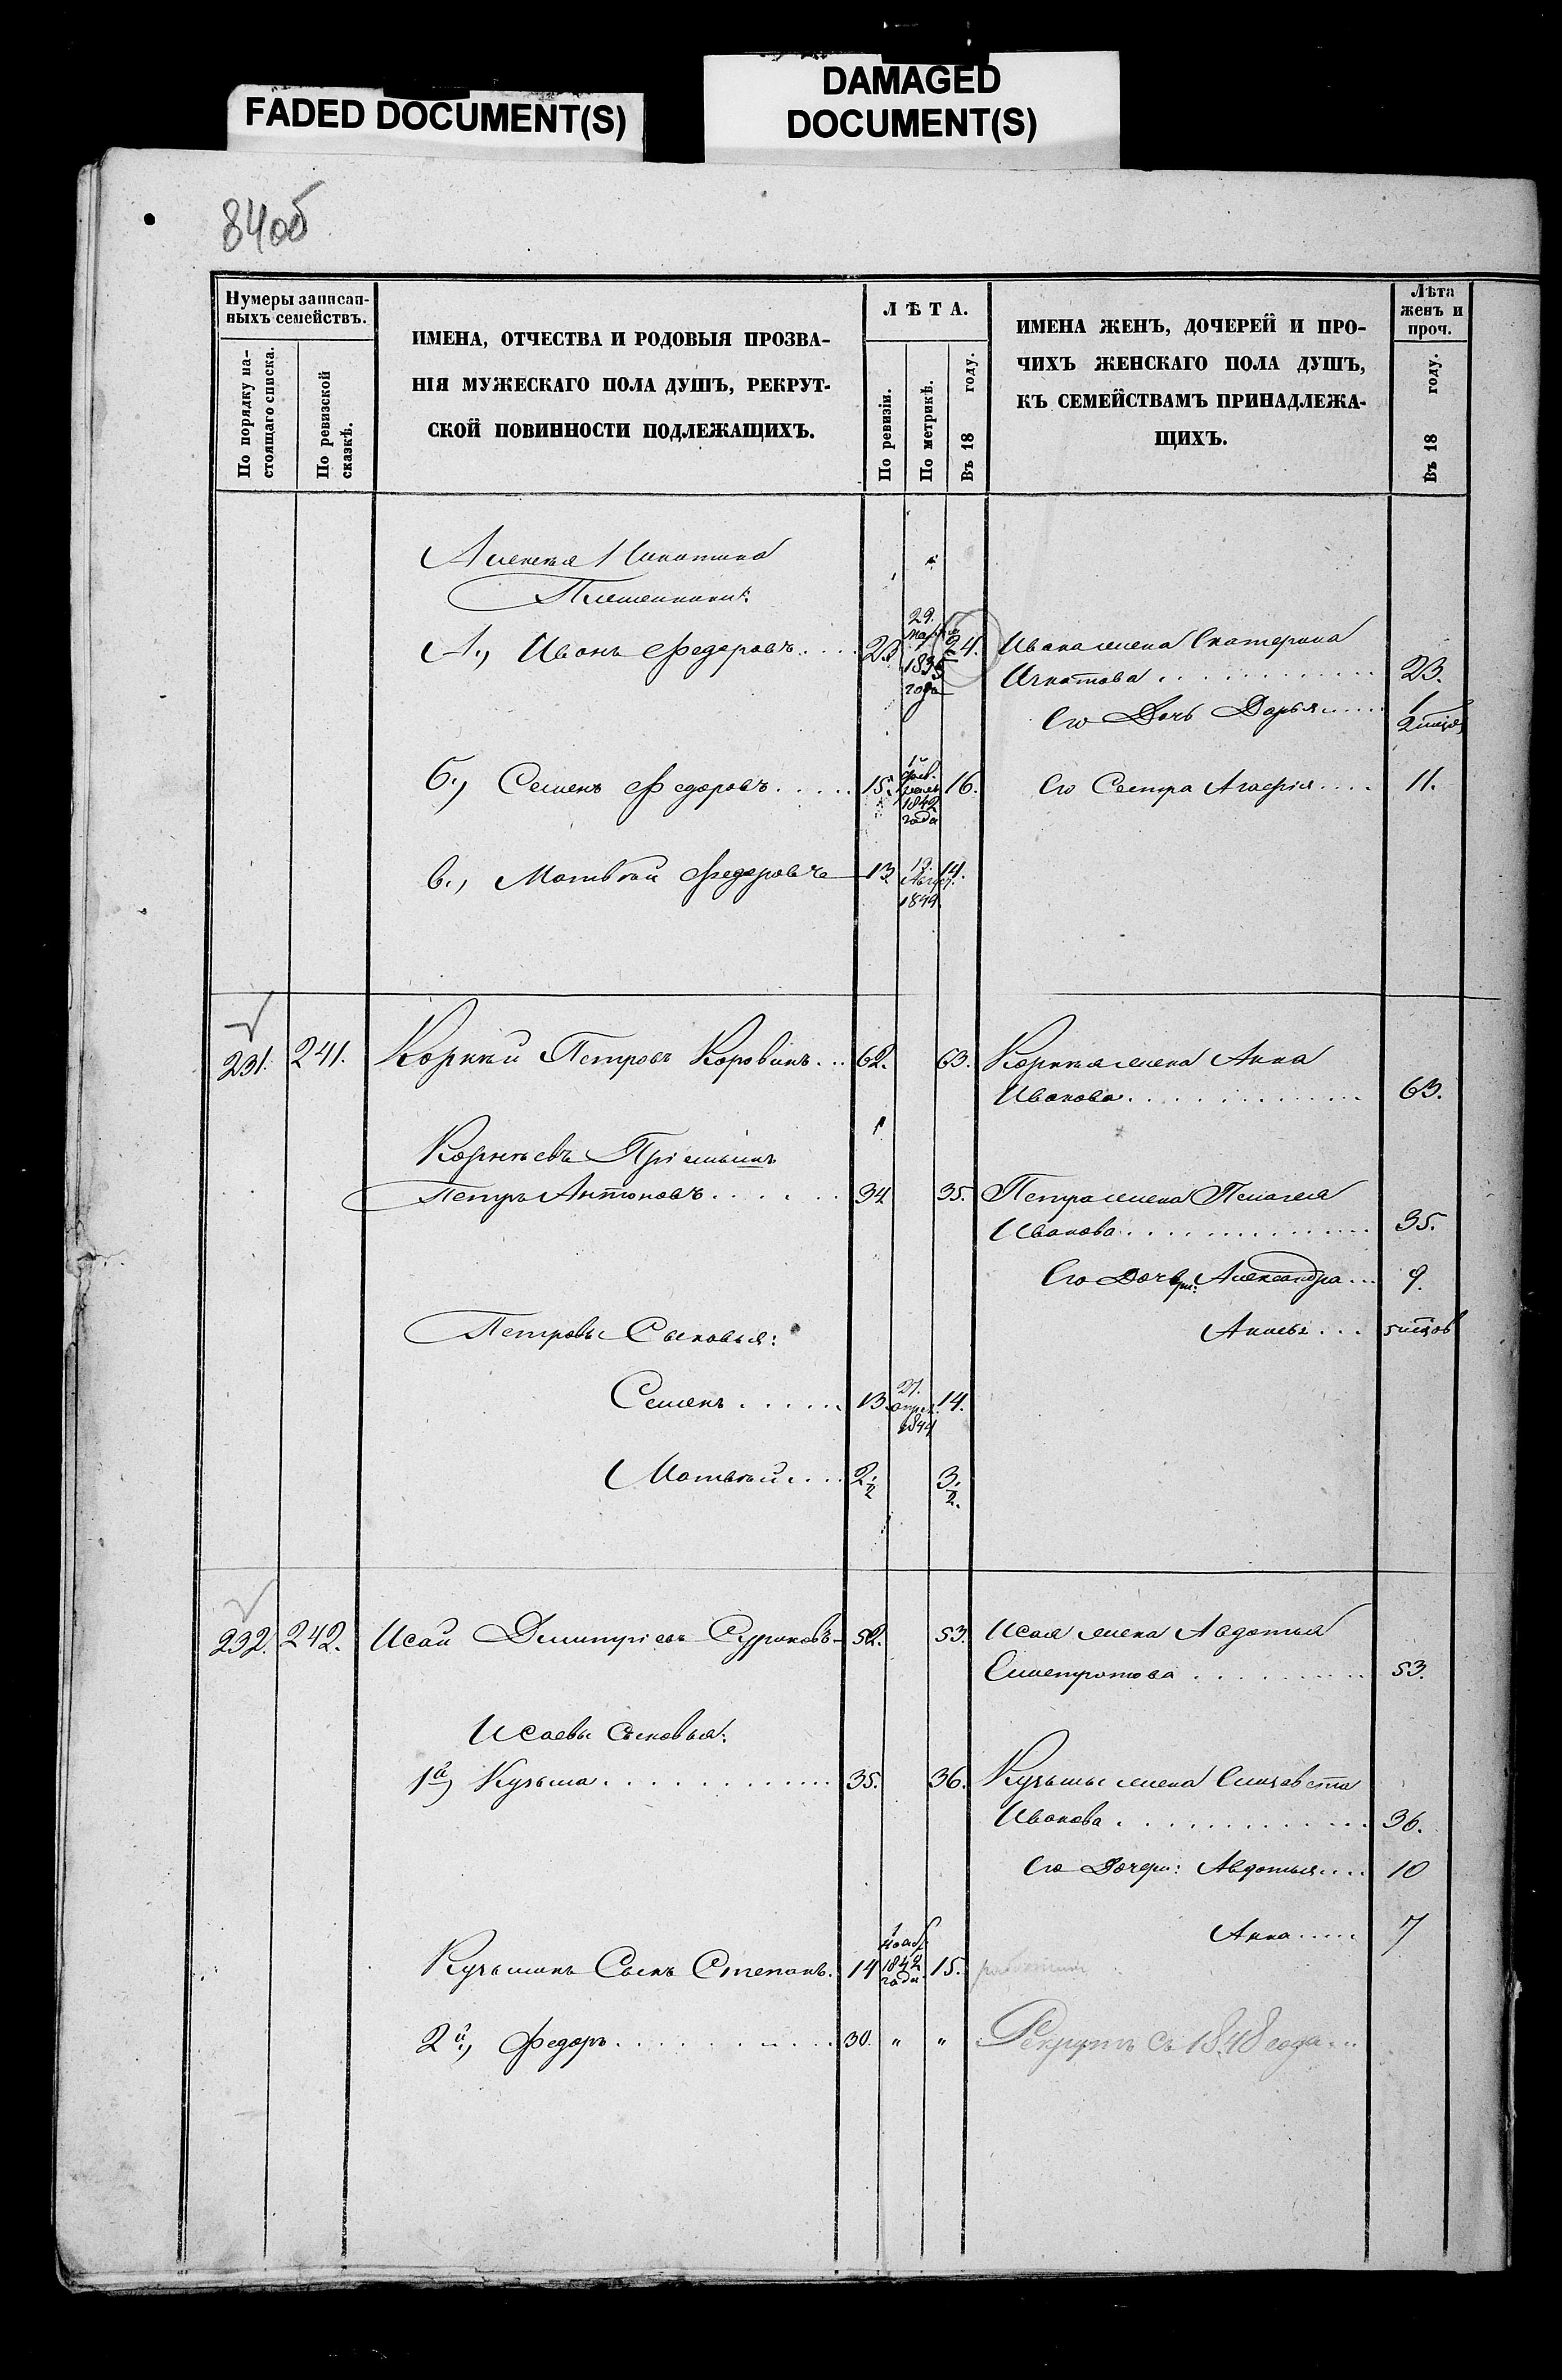 FADED DOCUMENT(S)
DAMAGED
DOCUMENT(S)
84об
Нумеры записан-
ныхъ семействъ.
По порядку на-
стоящаго списка.
По ревизской
сказкѣ.
ИМЕНА, ОТЧЕСТВА И РОДОВЫЯ ПРОЗВА-
НІЯ МУЖЕСКАГО ПОЛА ДУШЪ, РЕКРУТ-
СКОЙ ПОВИННОСТИ ПОДЛЕЖАЩИХЪ.
ЛѢТА.
По ревизіи.
По метрикѣ.
Въ 18 году.
ИМЕНА ЖЕНЪ, ДОЧЕРЕЙ И ПРО-
ЧИХЪ ЖЕНСКАГО ПОЛА ДУШЪ,
КЪ СЕМЕЙСТВАМЪ ПРИНАДЛЕЖА-
ЩИХЪ.
Лѣта
женъ и
проч.
Въ 18 году.
Алексѣя Никитина
Племянники:
А., Иванъ Федоровъ 23 29. Марта 1835 года 24. Ивана жена Екатерина
Игнатова 23.
Его Дочь Дарья 1
Б., Семенъ Федоровъ 15. 1842 года 16. Его Сестра Агафія 11.
в., Матвѣй Федоровъ 13 19. Авгус. 1844. 14.
231. 241. Корнѣй Петровъ Коровинъ 62. 63. Корнѣя жена Анна
Иванова 63.
Корнѣевъ Пріемышъ
Петръ Антоновъ 34 35. Петра жена Пелагея
Иванова 35.
Его Дочери: Александра 9.
Петровы Сыновья:
5 мѣцов
Семенъ 13. 27. апрел. 1844 14.
Матвѣй 2. 1/2 3. 1/2.
232. 242. Исай Димитріевъ Суриковъ 52. 53. Исая жена Авдотья
53.
Исаевы Сыновья:
1й) Кузьма 35. 36. Кузьмы жена Елизавета
Иванова 36.
Его Дочери: Авдотья 10
Анна 7
Кузьминъ Сынъ Степанъ. 14 1 нояб. 1842 года 15.
2й., Федоръ 30. " " Рекрутъ съ 1848 года